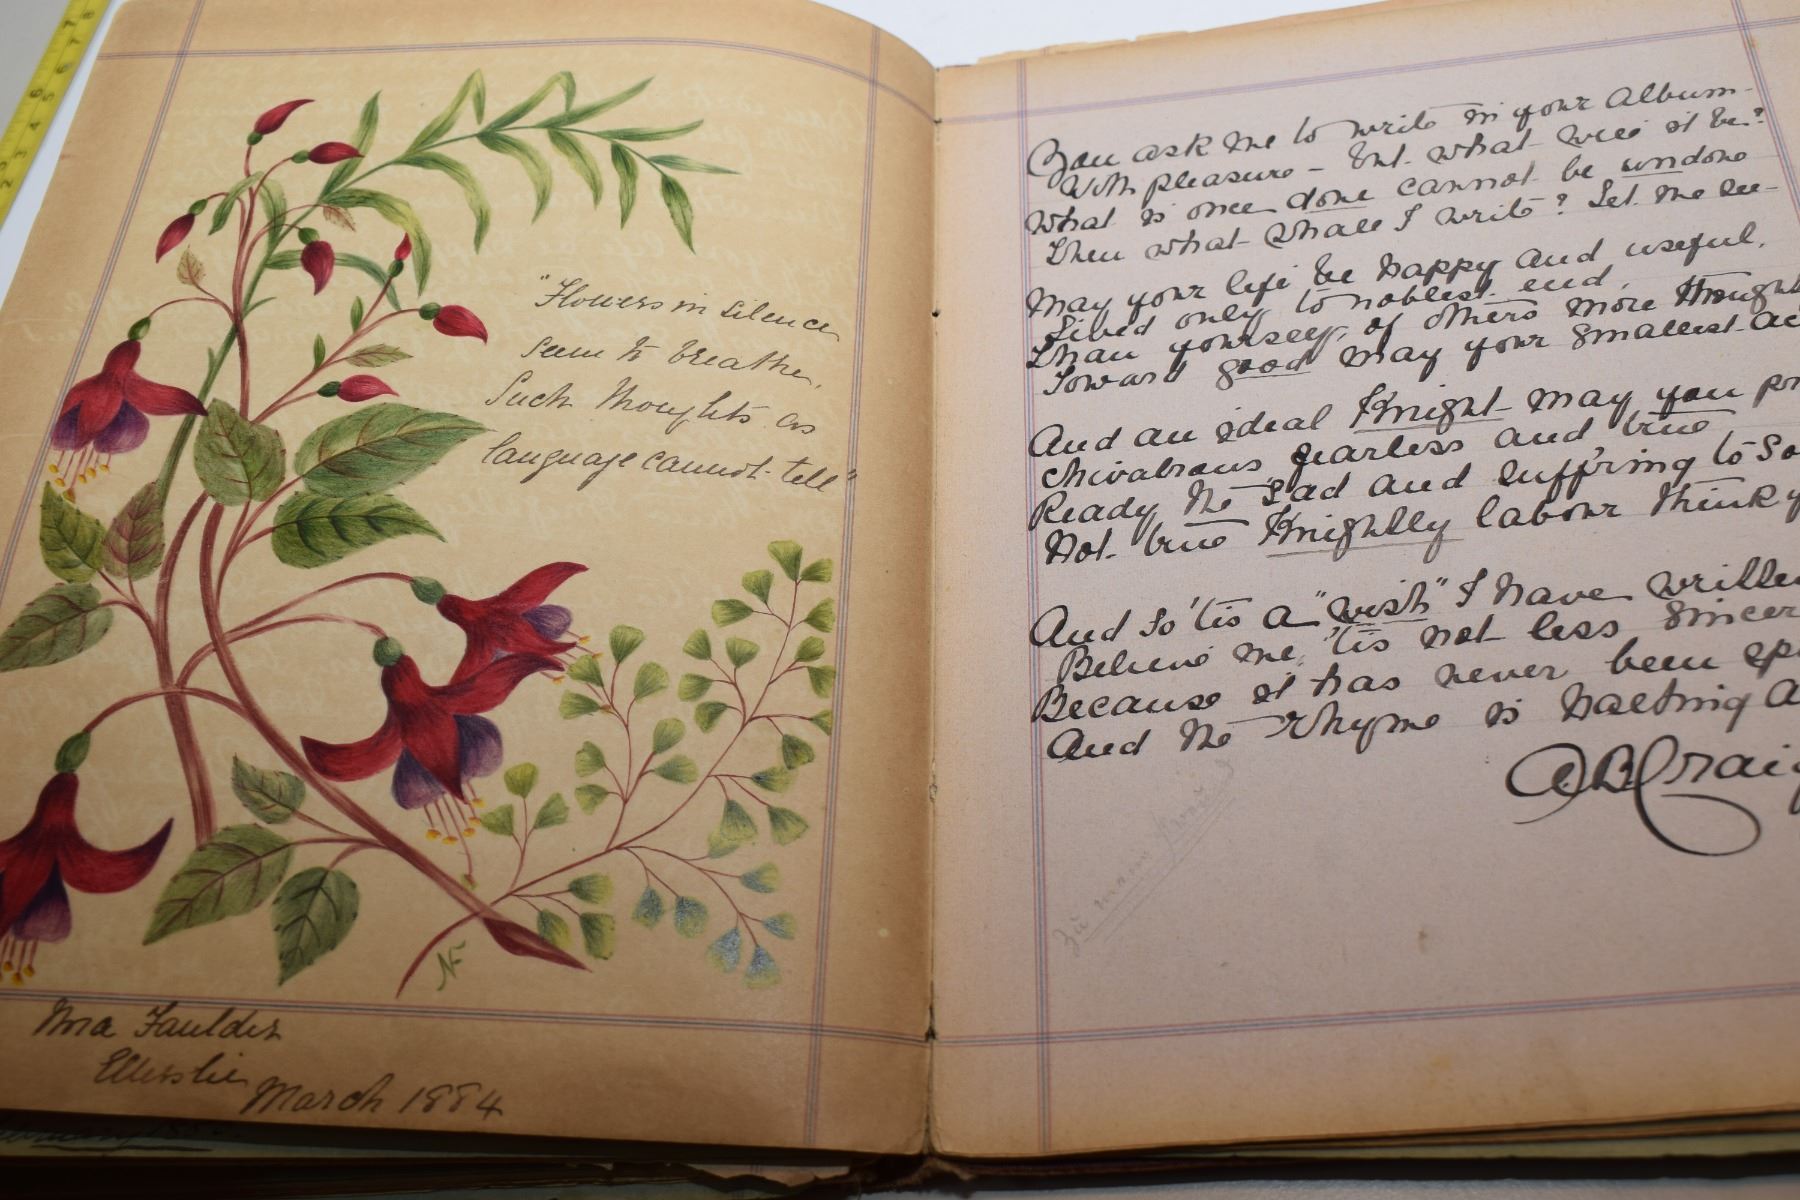 "Flowers in silence
seem to breathe,
Such thoughts as
language cannot tell"
NF
Faulder
Ellerslie
March 1884
You ask me to write in your Album -
With pleasure - but what will it be?
What is once done cannot be undone
Then what shall I write? Let me see -
May your life be happy and useful,
Lived only to noblest end,
Than yourself, of others more thought
Toward good may your smallest
And an ideal Knight may you
Chivalrous fearless and true
Ready the sad and suff'ring to
Not true Knightly labour think
And so 'tis a "wish" I have written
Believe me, 'tis not less
Because it has never been
And the rhyme is halting
Zu mein
2 3 4 5 6 7 8